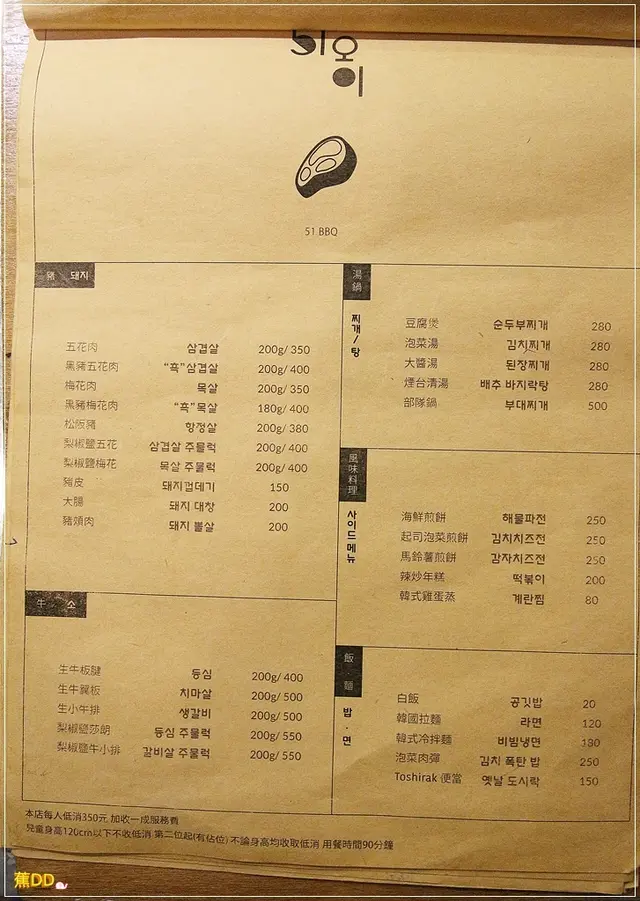 오이
51 BBQ
豬 돼지
五花肉 삼겹살 200g/ 350
黑豬五花肉 “흑”삼겹살 200g/ 400
梅花肉 목살 200g/ 350
黑豬梅花肉 “흑”목살 180g/ 400
松阪豬 항정살 200g/ 380
梨椒鹽五花 삼겹살 주물럭 200g/ 400
梨椒鹽梅花 목살 주물럭 200g/ 400
豬皮 돼지껍데기 150
大腸 돼지 대창 200
豬頰肉 돼지 뽈살 200
牛 소
生牛板腱 등심 200g/ 400
生牛翼板 치마살 200g/ 500
生小牛排 생갈비 200g/ 500
梨椒鹽莎朗 등심 주물럭 200g/ 550
梨椒鹽牛小排 갈비살 주물럭 200g/ 550
湯鍋
찌개/탕
豆腐煲 순두부찌개 280
泡菜湯 김치찌개 280
大醬湯 된장찌개 280
煙台清湯 배추 바지락탕 280
部隊鍋 부대찌개 500
風味料理
사이드메뉴
海鮮煎餅 해물파전 250
起司泡菜煎餅 김치치즈전 250
馬鈴薯煎餅 감자치즈전 250
辣炒年糕 떡볶이 200
韓式雞蛋蒸 계란찜 80
飯·麵
밥·면
白飯 공깃밥 20
韓國拉麵 라면 120
韓式冷拌麵 비빔냉면 180
泡菜肉彈 김치 폭탄 밥 250
Toshirak 便當 옛날 도시락 150
本店每人低消350元, 加收一成服務費
兒童身高120cm以下不收低消 第二位起(有佔位) 不論身高均收取低消 用餐時間90分鐘
蕉DD